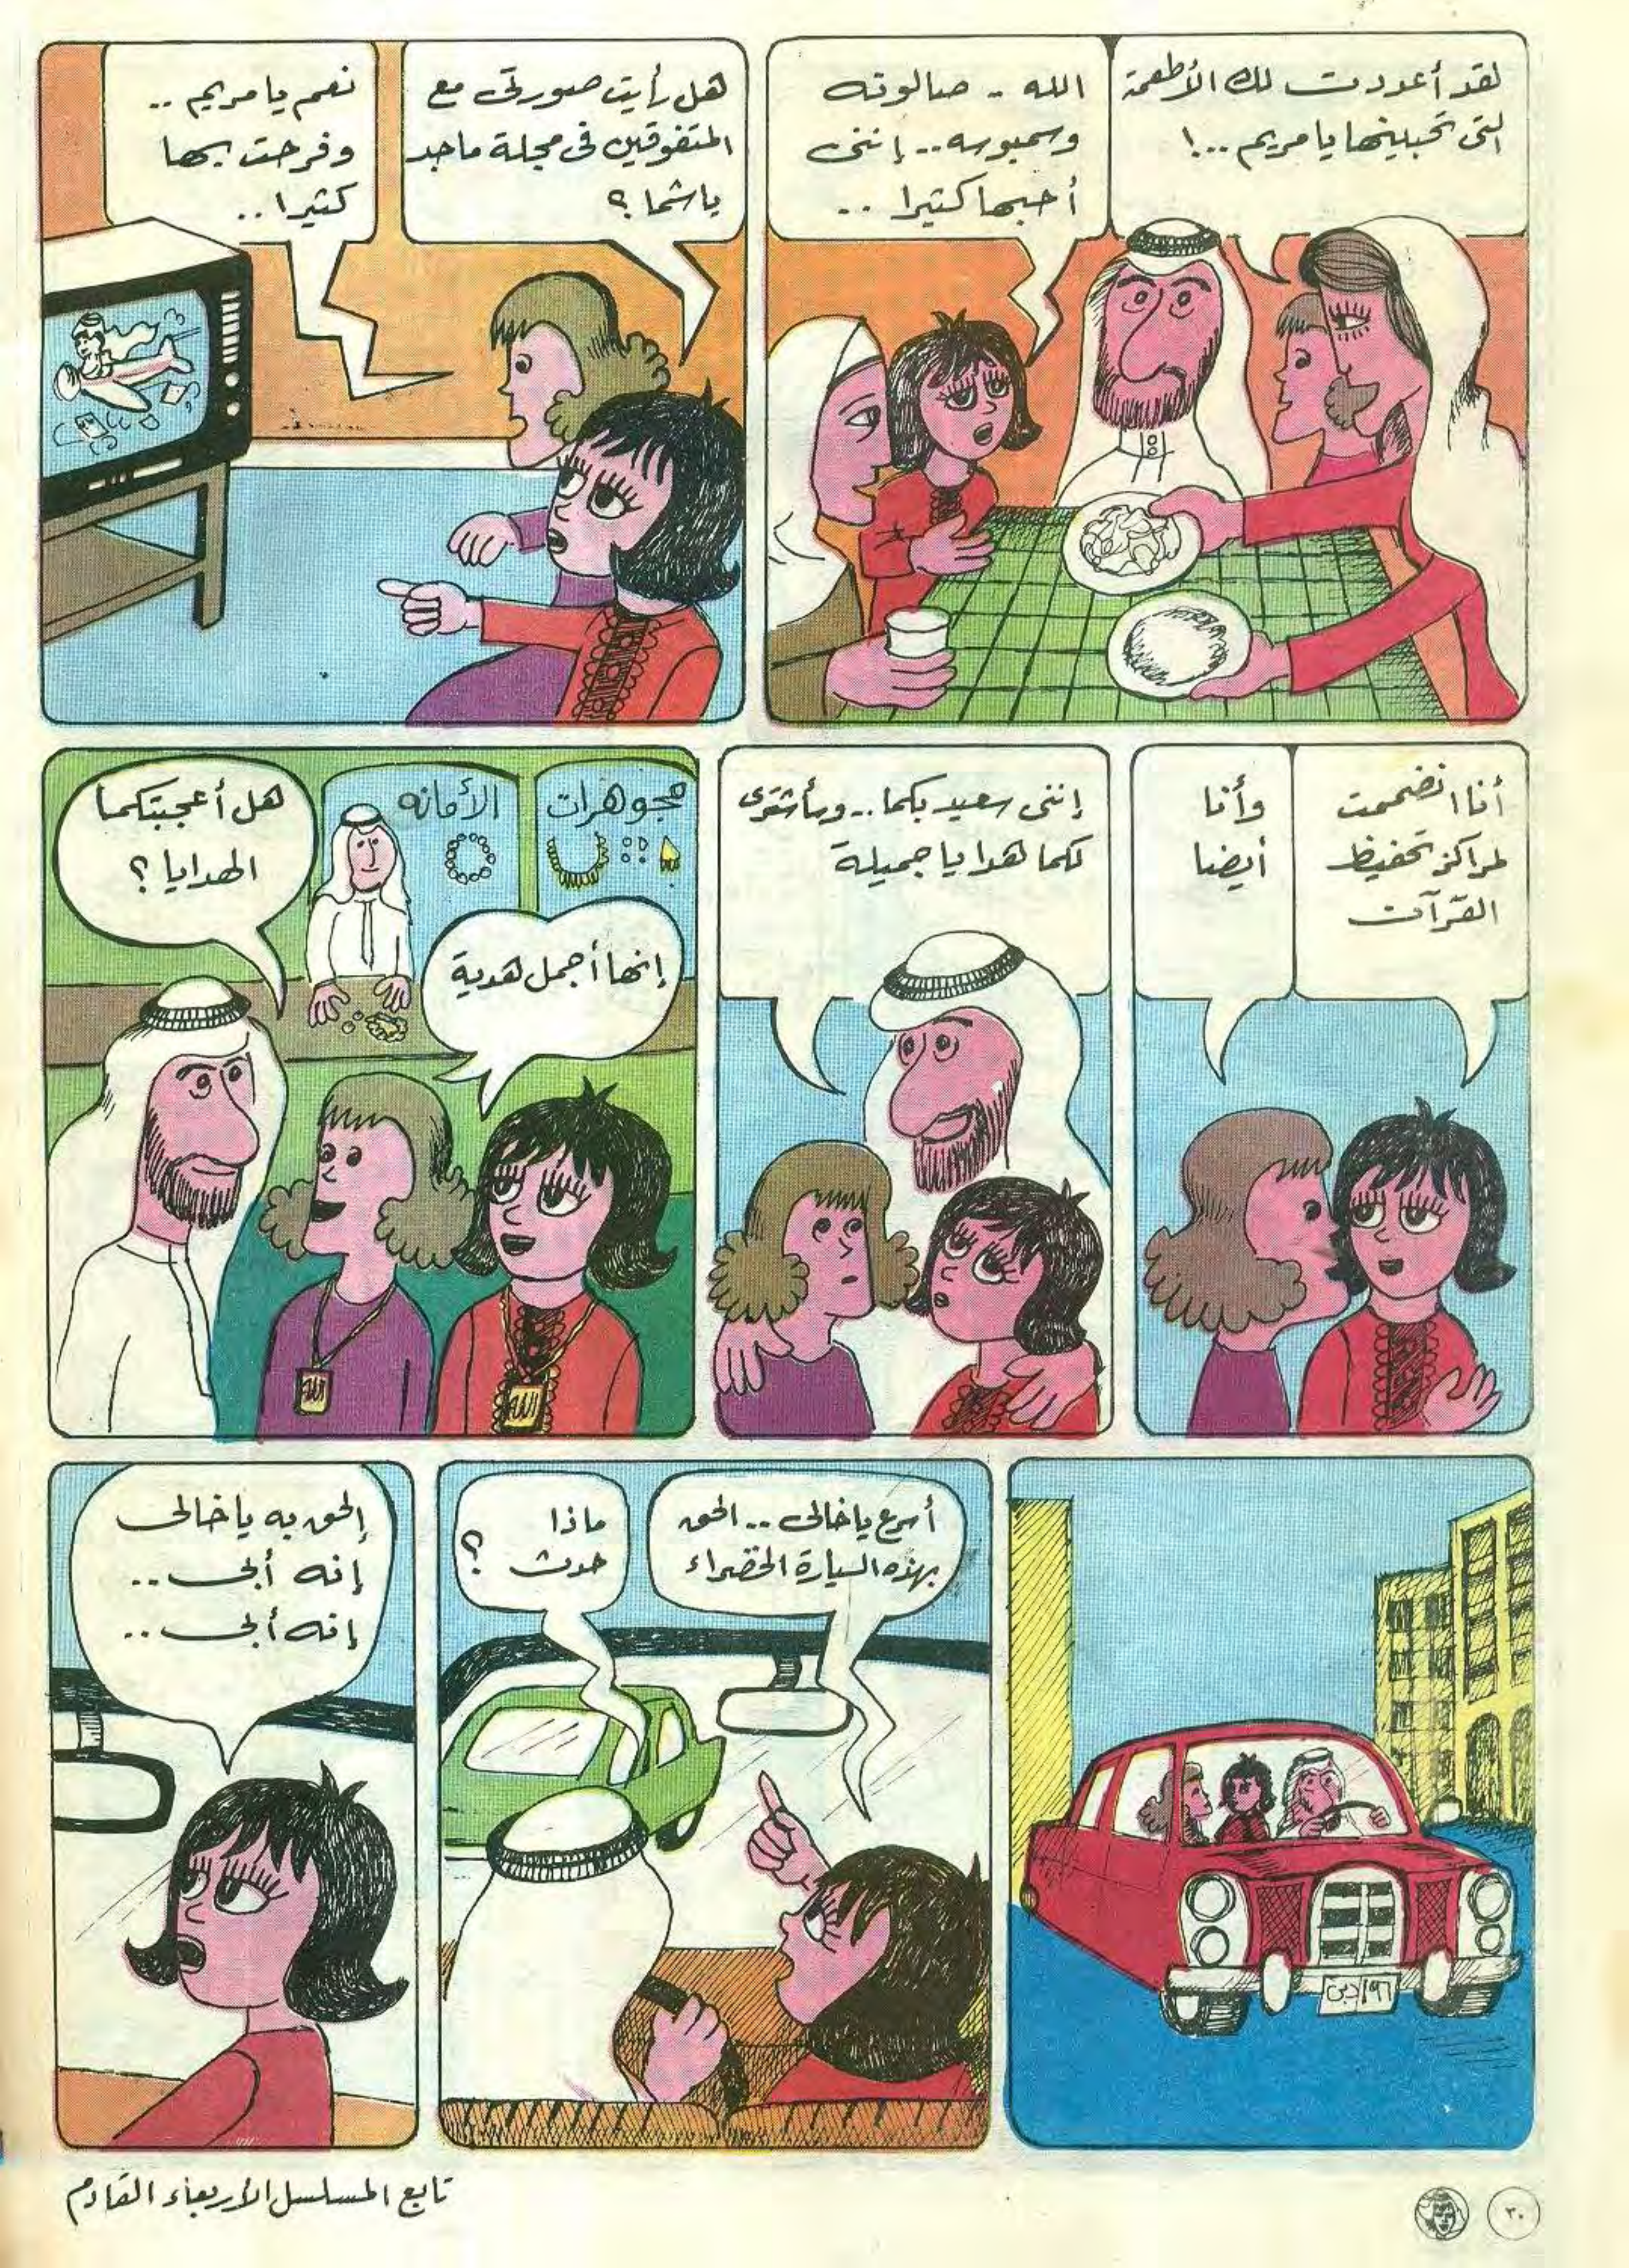 لقد أعددت لك الأطعمة
التى تحبينها يا مريم ..!
الله .. صالونه
وسمبوسه .. إننى
أحبها كثيرا ..
هل رأيت صورتى مع
المتفوقين فى مجلة ماجد
يا شما ؟
نعم يا مريم ..
وفرحت بها
كثيرا ..
أنا انضممت
لمراكز تحفيظ
القرآن
وأنا
أيضا
إننى سعيد بكما .. وسأشترى
لكما هدايا جميلة
مجوهرات
الأمانه
هل أعجبتكما
الهدايا ؟
إنها أجمل هدية
الله
الله
دبى
أسرع يا خالى .. الحق
بهذه السيارة الخضراء
ماذا
حدث ؟
إلحق به يا خالى
إنه أبى ..
إنه أبى ..
تابع المسلسل الأربعاء القادم
٣٠